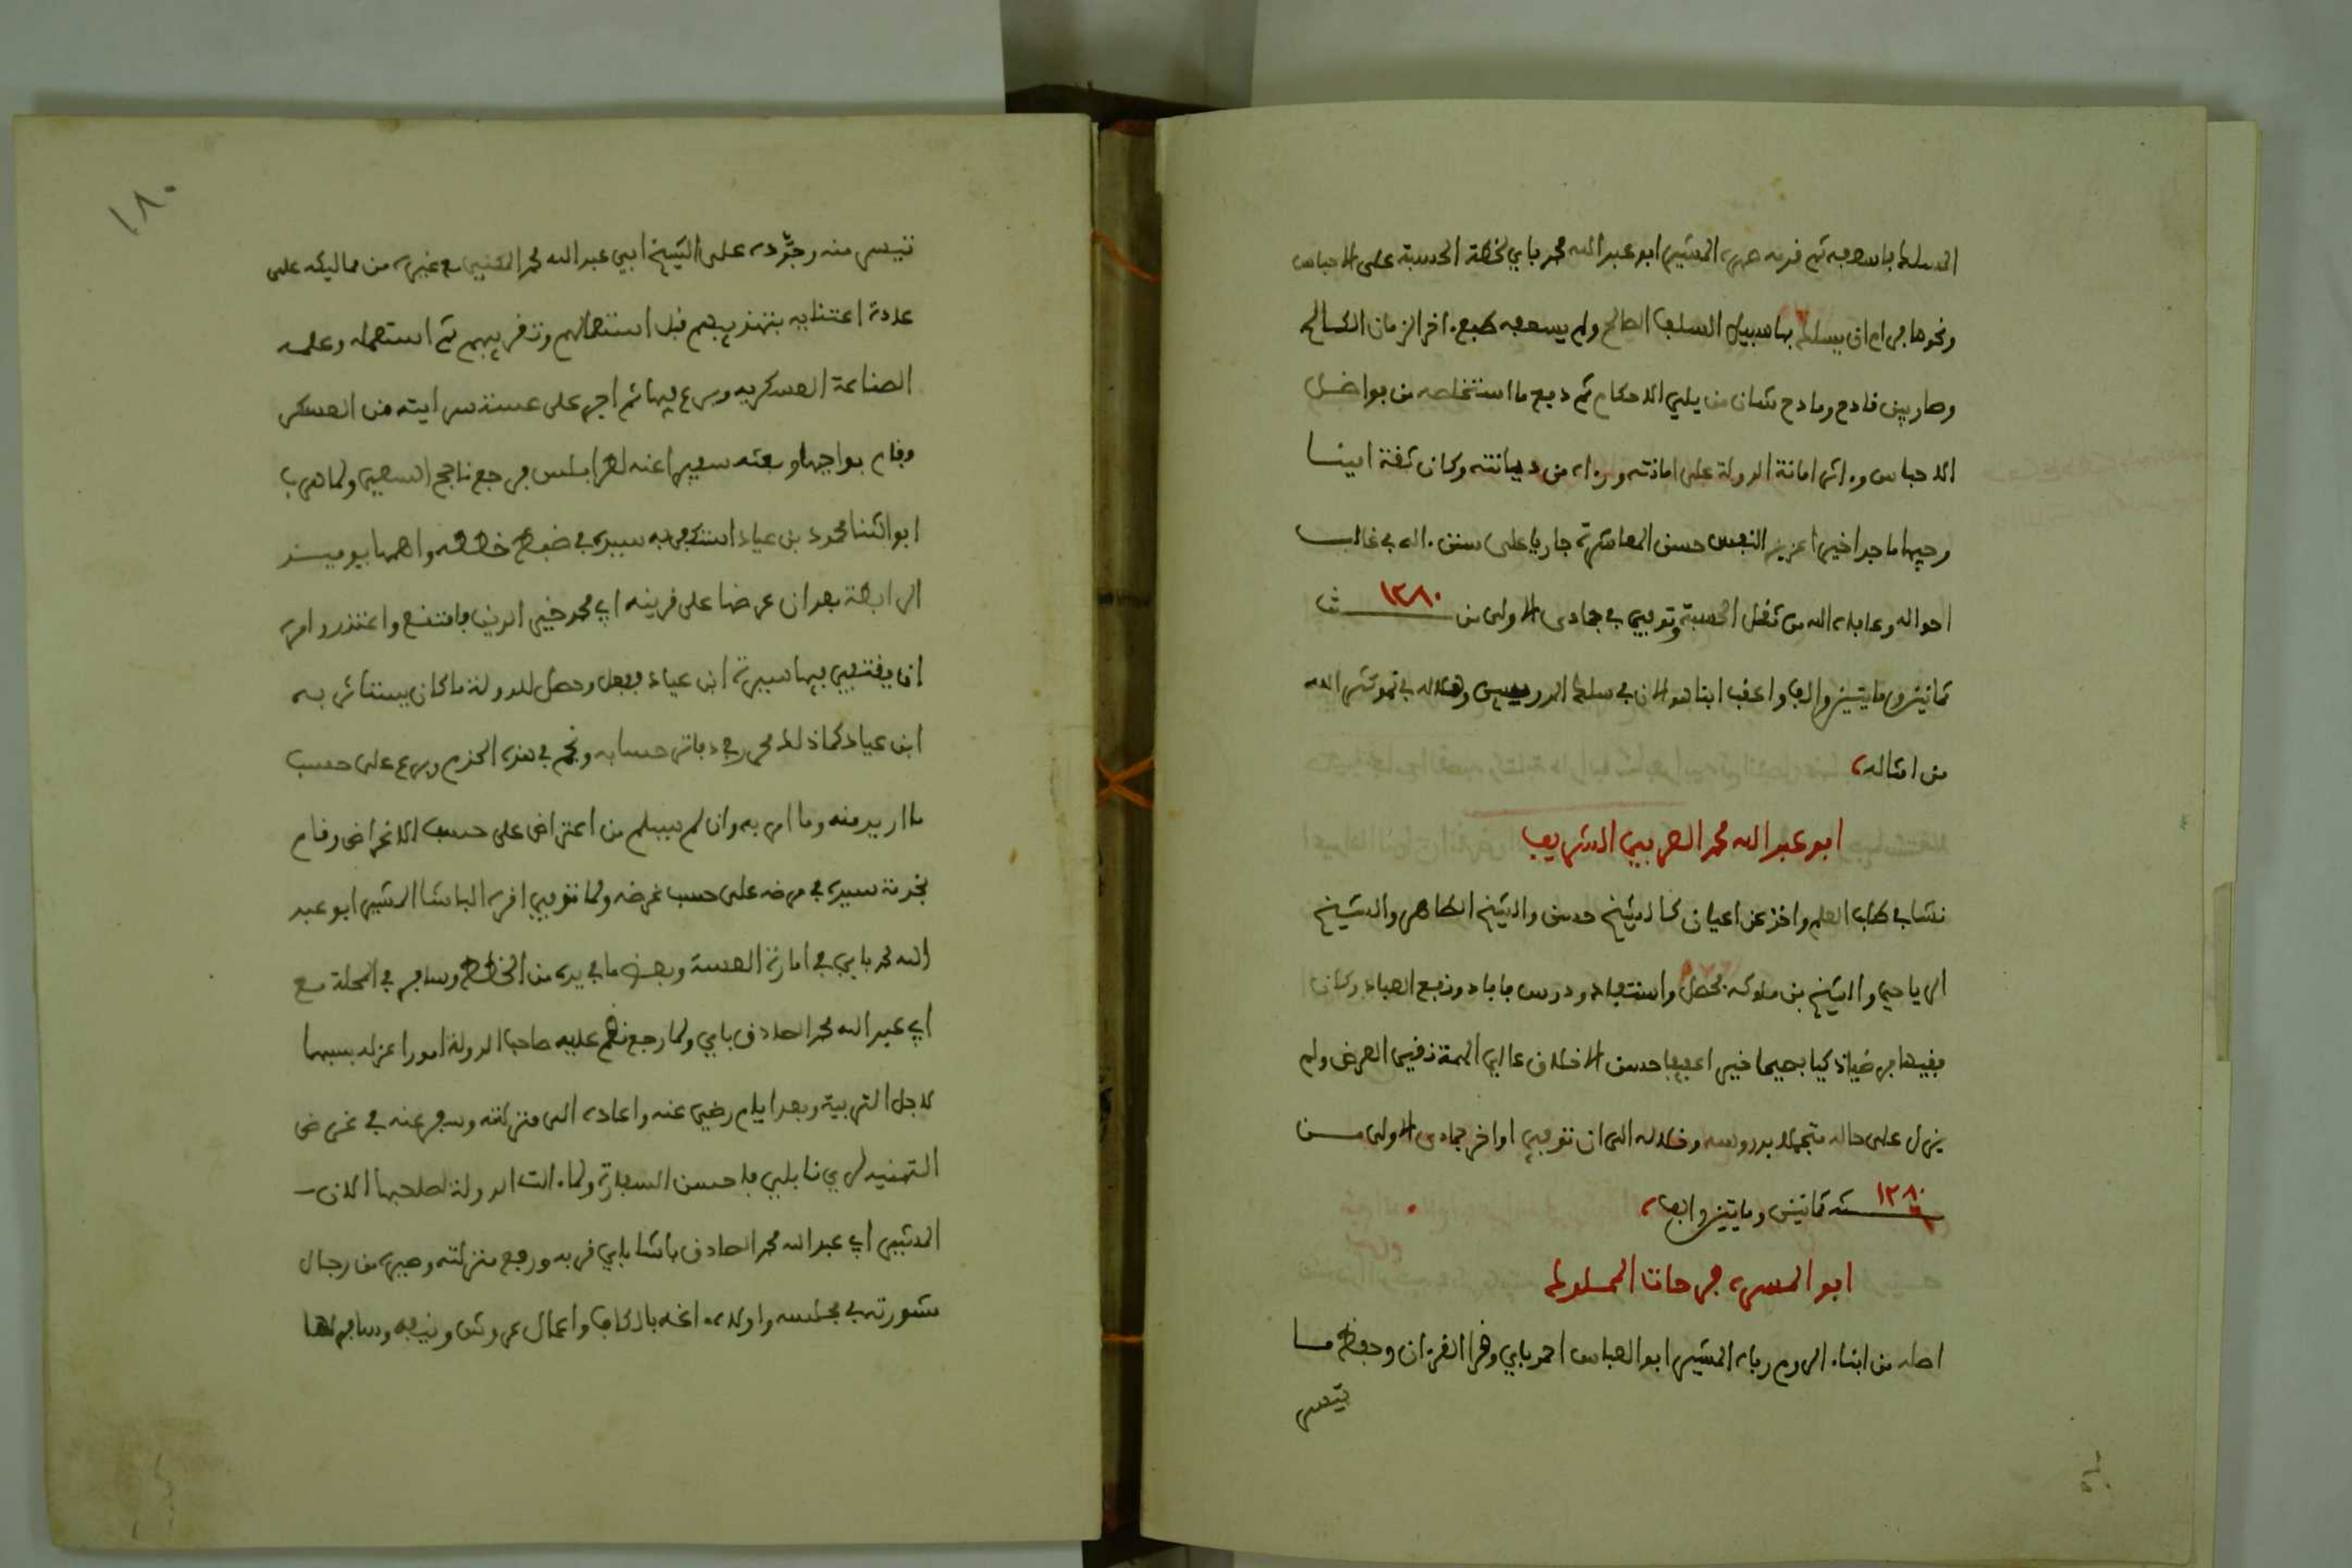 المسلط باسعبه ثم قربه صهره المشير ابو عبد الله محمد باي لخطة الحسبة على الاحباس
ونحوها فرام ان يسلك بها سبيل السلف الصالح ولم يسعفه طبع اخر الزمان الكالح
وصار بين قادح ومادح شان من يلي الاحكام ثم دفع ما استخلصه من فواضل
الاحباس وءاثر امانة الدولة على امانته وزاد من ديانته وكان ثقة امينا
وجيها ماجدا خيرا عزيز النفس حسن المعاشرة جاريا على سنن ءاله في غالب
احواله وعافاه الله من ثقل الحسبة وتوفي في جمادى الاولى من ١٢٨٠ سنة
ثمانين ومايتين والف واعقب ابنا هو الان في سلك المدرسين وهلاله في نمو كثر الله
من امثاله،
ابو عبد الله محمد العربي الشريف
نشا في طلب العلم واخذ عن اعيان كالشيخ حسن والشيخ الطاهر والشيخ
الرياحي والشيخ بن ملوكه فحصل واستفاد ودرس فافاد ونفع العباد وكان
فقيها فرضيا ذكيا فصيحا خيرا عفيفا حسن الاخلاق عالي الهمة نقي العرض ولم
يزل على حاله متجملا بدروسه وخلاله الى ان توفي اواخر جمادى الاولى من
١٢٨٠ سنة ثمانين ومايتين والف،
ابو المسره فرحات المملوك
اصله من ابناء الروم رباه المشير ابو العباس احمد باي وقرا القرءان وحفظ ما
تيسر
١٨٠
تيسر منه وجوده على الشيخ ابي عبد الله محمد المغيربي مع غيره من مماليكه على
عادة اعتنايه بتهذيبهم قبل استعمالهم وتقريبهم ثم استعمله وعلمه
الصناعة العسكرية وبرع فيها ثم اجرى على عسته سرايته من العسكر
وقام بواجبها وبعثه سفيرا عنه لطرابلس فرجع ناجح السعي ولما هرب
ابو الثنا محمود بن عياد استكفى به سيده في ضبط خططه واهمها يوميند
الرابطة بعد ان عرضها على قرينه ابي محمد خير الدين فامتنع واعتذر وامره
ان يقتفي فيها سيرة ابن عياد ففعل وحصل للدولة ما كان يستاثر به
ابن عياد كما ذلك محرر في دفاتر حسابه ونجح في هذه الحزم وبرع على حسب
ما اريد منه وما امر به وان لم يسلم من اعتراض على حسب الاغراض وقام
بخدمة سيده في مرضه على حسب غرضه ولما توفي اقره الباشا المشير ابو عبد
الله محمد باي في امارة العسة وبعض ما في يده من الخطط وسافر في المحلة مع
ابي عبد الله محمد الصادق باي ولما رجع نقم عليه صاحب الدولة امورا عزله بسببها
لاجل التربية وبعد ايام رضي عنه واعاده الى منزلته وسفر عنه في غرض
التهنية لري نابلي فاحسن السفارة ولما ءالت الدولة لصاحبها الان
المشير ابي عبد الله محمد الصادق باشا باي قربه ورفع منزلته وصيره من رجال
شورته في مجلسه واولاده اغه بالكاف واعمال عروش ونيفه وسافر لها